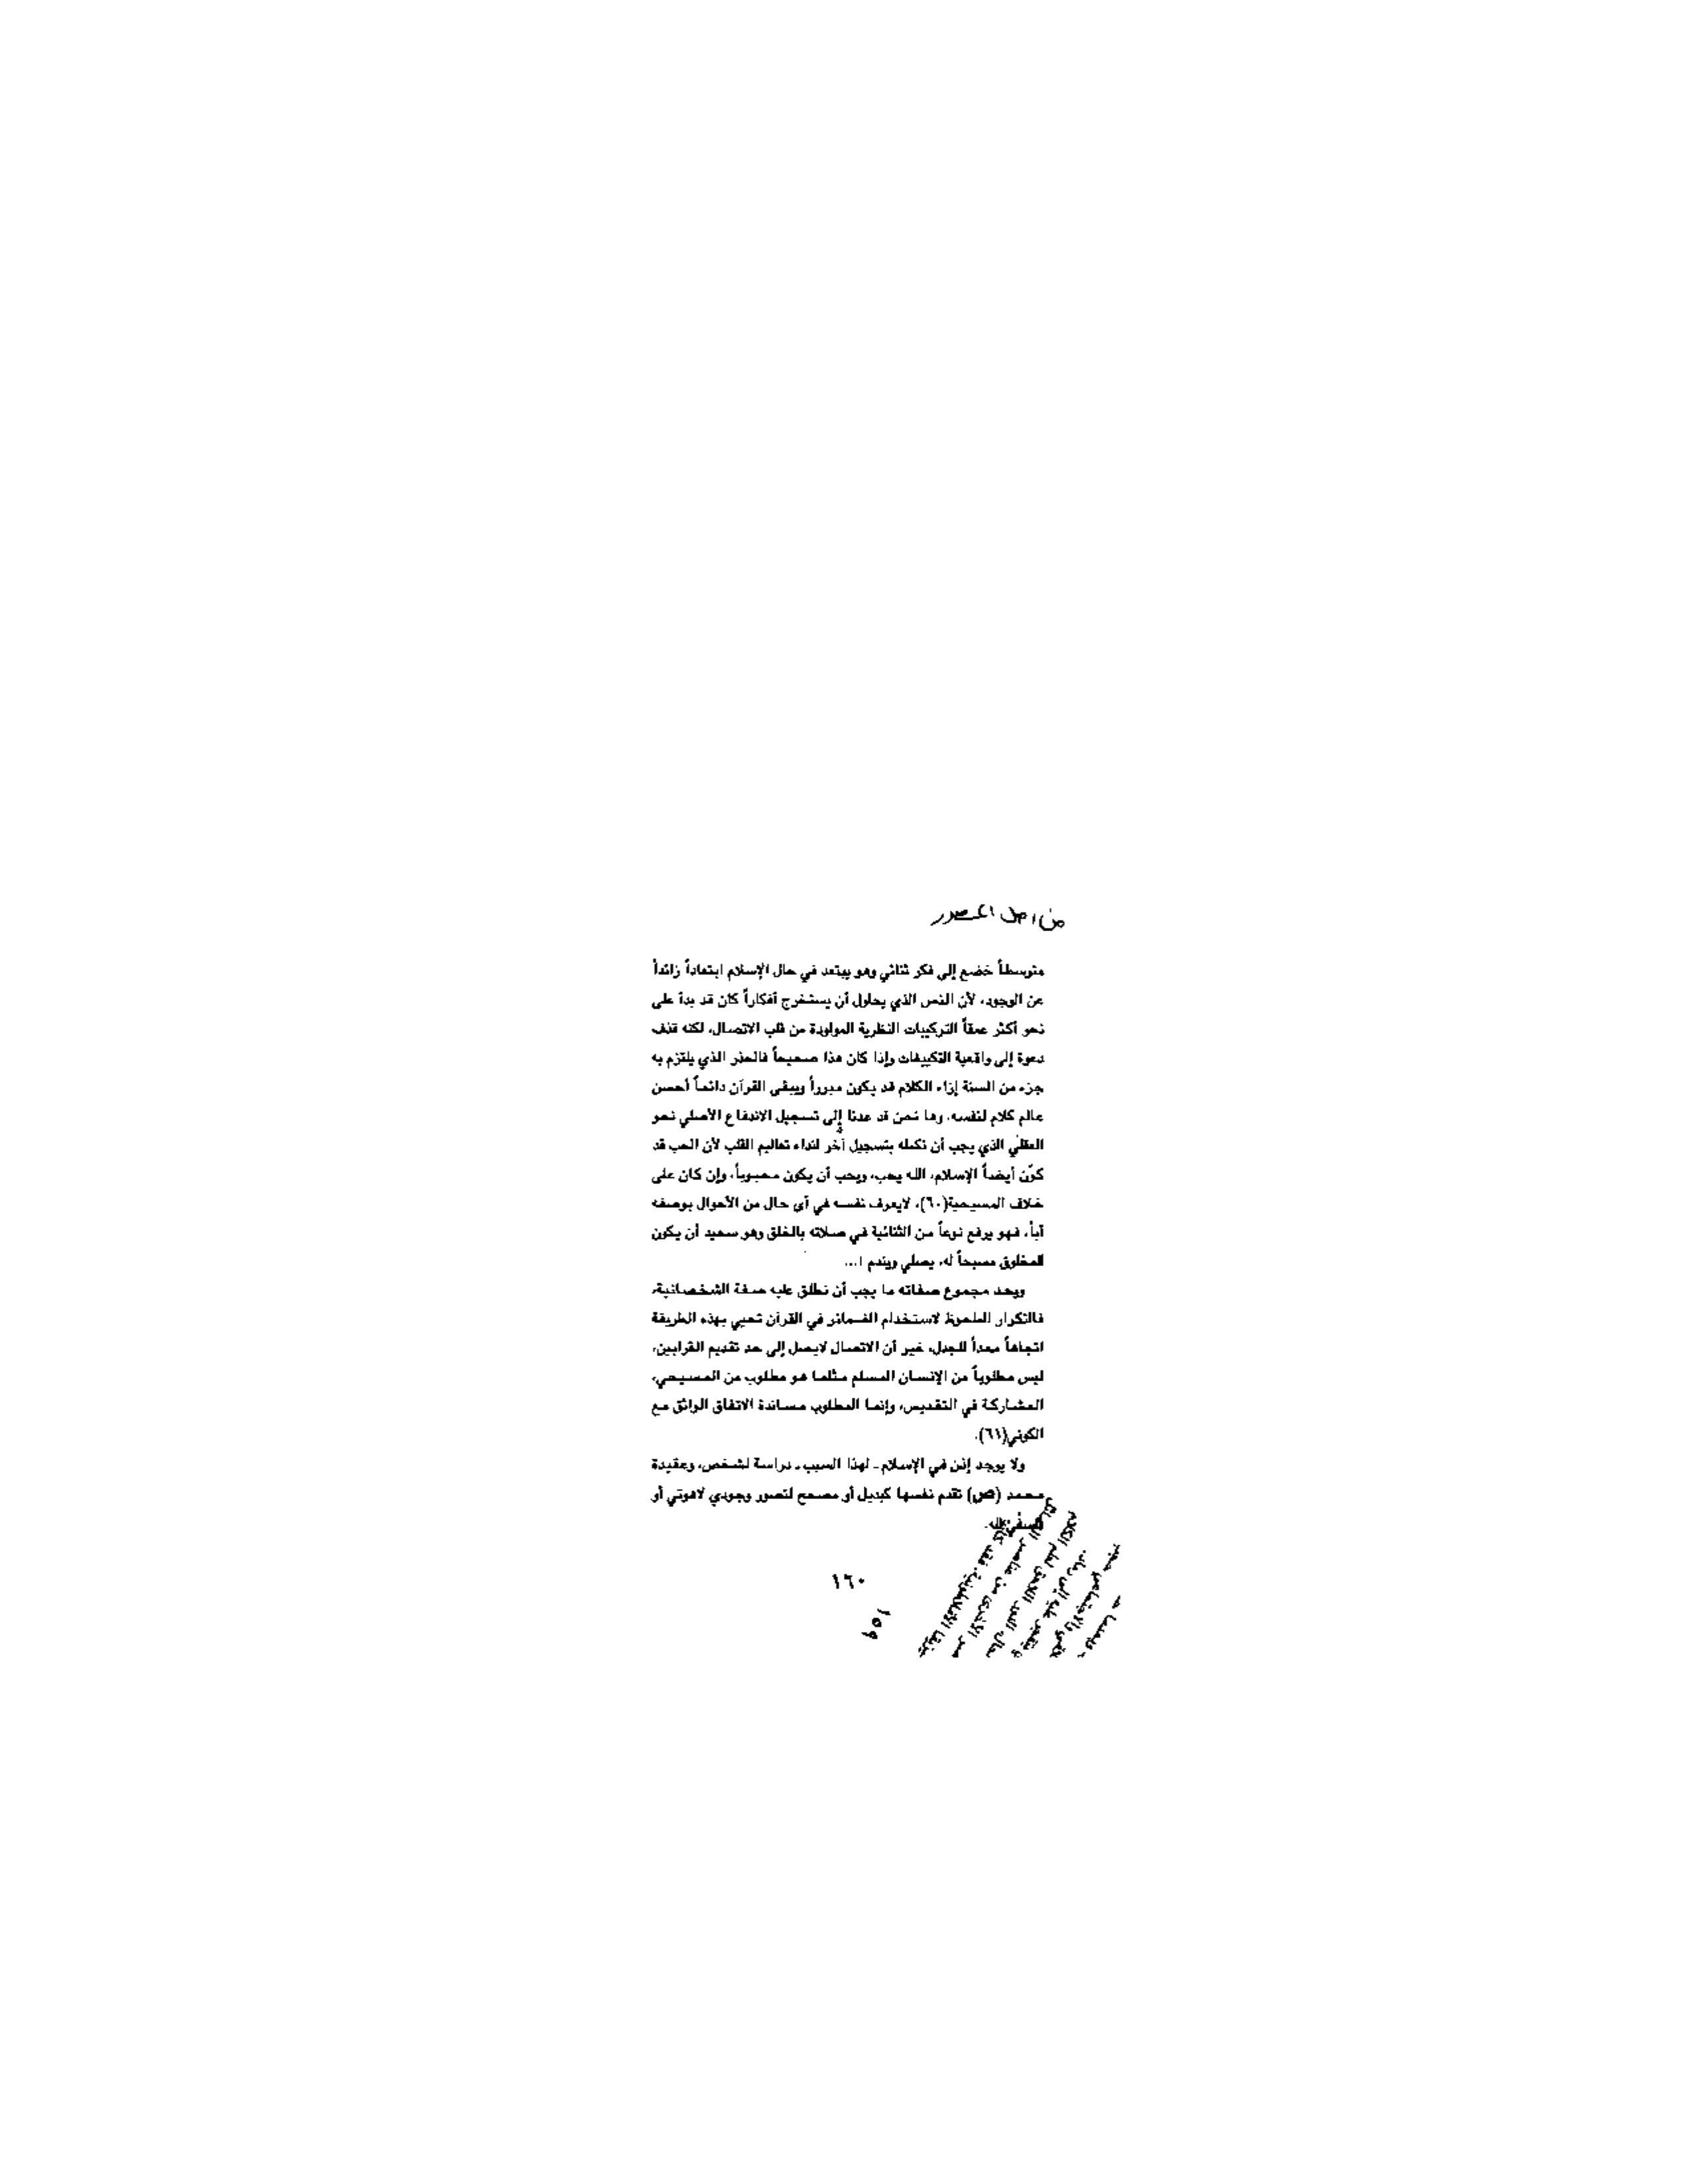 من اصل المصدر
متوسطاً خضع إلى فكر ثنائي وهو يبتعد في حال الإسلام ابتعاداً زائداً
عن الوجود، لأن النص الذي يحاول أن يستخرج أفكاراً كان قد بدأ على
نحو أكثر عمقاً التركيبات النظرية المولودة من قلب الاتصال، لكنه قذف
دعوة إلى واقعية التكييفات وإذا كان هذا صحيحاً فالحذر الذي يلتزم به
جزء من السنة إزاء الكلام قد يكون مبرراً ويبقى القرآن دائماً أحسن
عالم كلام لنفسه، وها نحن قد عدنا إلى تسجيل الاندفاع الأصلي نحو
العقلي الذي يجب أن نكمله بتسجيل آخر لنداء تعاليم القلب لأن الحب قد
كوّن أيضاً الإسلام، الله يحب، ويحب أن يكون محبوباً، وإن كان على
خلاف المسيحية(٦٠)، لايعرف نفسه في أي حال من الأحوال بوصفه
أباً، فهو يرفع نوعاً من الثنائية في صلاته بالخلق وهو سعيد أن يكون
المخلوق مسبحاً له، يصلي ويندم !...
ويحد مجموع صفاته ما يجب أن نطلق عليه صفة الشخصانية،
فالتكرار الملحوظ لاستخدام الضمائر في القرآن تحيي بهذه الطريقة
اتجاهاً معداً للجدل، غير أن الاتصال لايصل إلى حد تقديم القرابين،
ليس مطلوباً من الإنسان المسلم مثلما هو مطلوب من المسيحي،
المشاركة في التقديس، وإنما المطلوب مساندة الاتفاق الواثق مع
الكوني(٦١).
ولا يوجد إذن في الإسلام ـ لهذا السبب ـ دراسة لشخص، وعقيدة
محمد (ص) تقدم نفسها كبديل أو مصحح لتصور وجودي لاهوتي أو
١٦٠
١٥٩